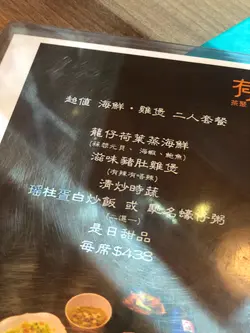 荷
茶樂
超值 海鮮·雞煲 二人套餐
籠仔荷葉蒸海鮮
(粉絲元貝、海蝦、鮑魚)
滋味豬肚雞煲
(有辣有唔辣)
清炒時蔬
瑤柱蛋白炒飯 或 馳名蠔仔粥
(二選一)
是日甜品
每席$438